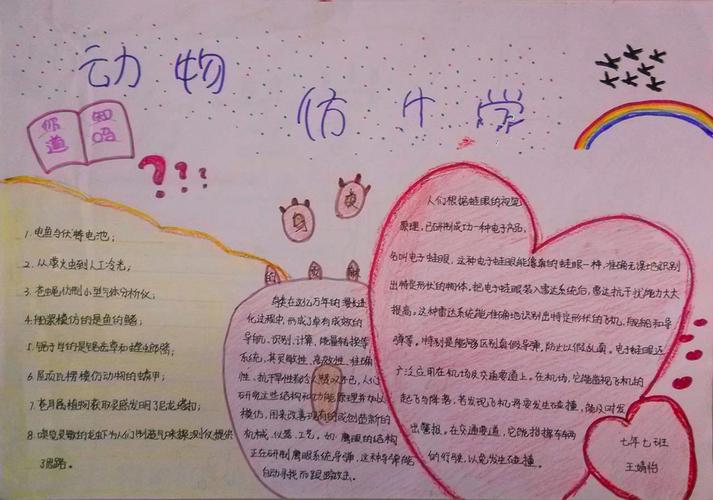 动物
仿生学
你知
道吗
???
1.电鱼与伏特电池;
2.从萤火虫到人工冷光;
3.苍蝇仿制小型气体分析仪;
4.船桨模仿的是鱼的鳍;
5.锯子学的是
6.屋顶瓦楞模仿动物的鳞甲;
7.苍耳属植物获取灵感发明了尼龙搭扣;
8.嗅觉灵敏的龙虾为人们制造气味探测仪提供
了思路。
自然
的
鸟类在这亿万年的漫长进
化过程中,形成了卓有成效的
导航、识别、计算、能量转换等
系统,其灵敏性、高效性、准确
性、抗干扰性
研究这些结构和功能原理并加以
模仿,用来改善现有的或创造新的
机械、仪器、工艺。如:鹰眼的结构
正在研制鹰眼系统导弹,这种导弹能
自动寻找而跟踪攻击。
人们根据蛙眼的视觉
原理,已研制成功一种电子产品,
名叫电子蛙眼,这种电子蛙眼能像真的蛙眼一样,准确无误地识别
出特定形状的物体。把电子蛙眼装入雷达系统后,雷达抗干扰能力大大
提高。这种雷达系统能准确地识别出特定形状的飞机、舰船和导
弹等。特别是能够区别真假导弹,防止以假乱真。电子蛙眼还
广泛应用在机场及交通要道上。在机场,它能监视飞机的
起飞与降落,若发现飞机将要发生碰撞,能及时发
出警报。在交通要道,它能指挥车辆
的行驶,以免发生碰撞。
七年七班
王婧怡